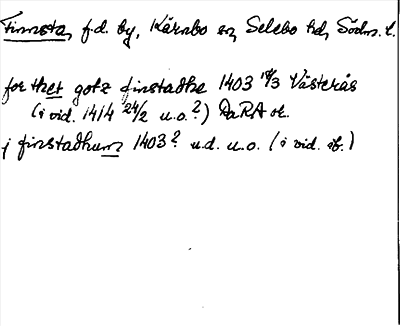 Finnsta, f.d. by, Kärnbo sn, Selebo hd, Södm. l.
for thet gotz finstadhe 1403 18/3 Västerås
(i vid. 1414 24/2 u.o.?) DaRA or.
j finstadhum 1403? u.d. u.o. (i vid. ib.)